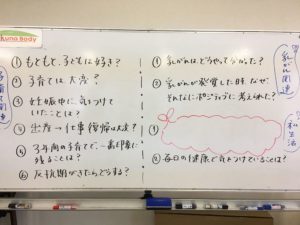 Luna Body
① もともと、子どもは好き？
② 子育ては大変？
③ 妊娠中に気をつけて
いたことは？
④ 出産→仕事復帰は大変？
⑤ 3年間の子育てで、一番印象に
残ることは？
⑥ 反抗期がきたらどうする？
① 乳がんは、どうやって分かった？
② 乳がんが発覚した時、なぜ、
そんなにポジティブに考えられた？
③
④ 毎日の健康で気をつけていることは？
乳がん関連
私生活